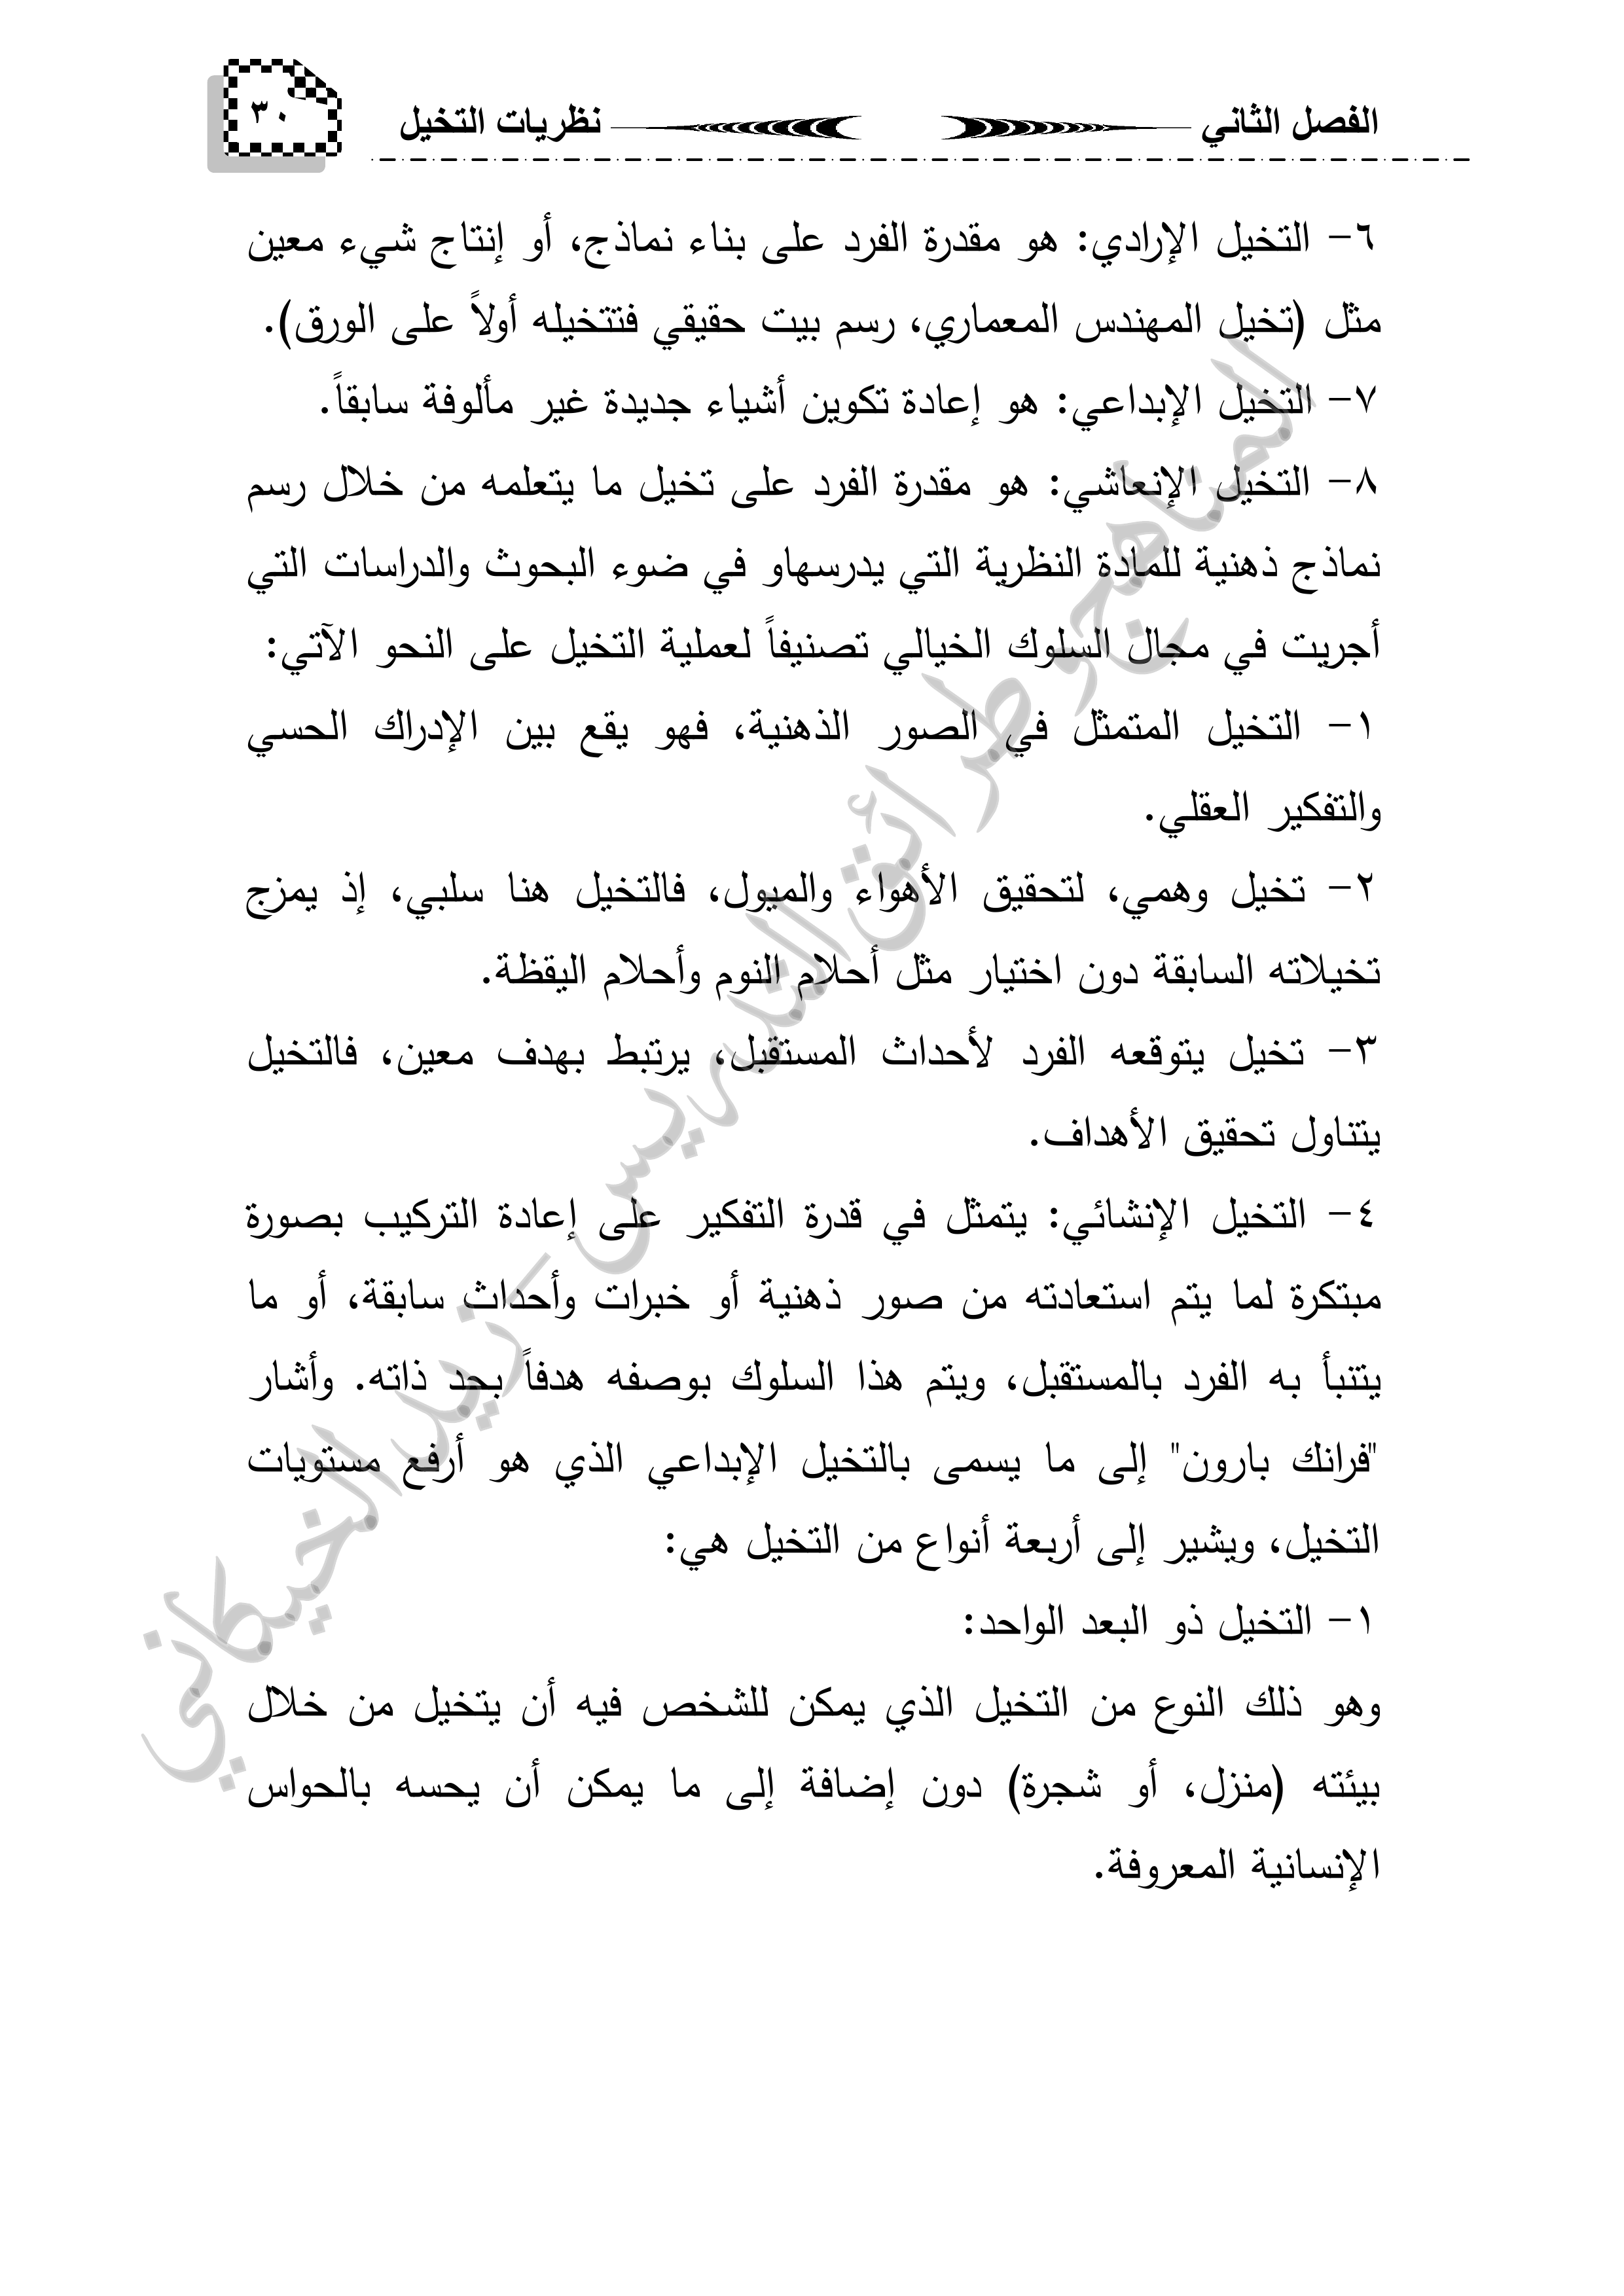 الفصل الثاني نظريات التخيل ٣٠
٦- التخيل الإرادي: هو مقدرة الفرد على بناء نماذج، أو إنتاج شيء معين
مثل (تخيل المهندس المعماري، رسم بيت حقيقي فتتخيله أولاً على الورق).
٧- التخيل الإبداعي: هو إعادة تكوين أشياء جديدة غير مألوفة سابقاً.
٨- التخيل الإنعاشي: هو مقدرة الفرد على تخيل ما يتعلمه من خلال رسم
نماذج ذهنية للمادة النظرية التي يدرسهاو في ضوء البحوث والدراسات التي
أجريت في مجال السلوك الخيالي تصنيفاً لعملية التخيل على النحو الآتي:
١- التخيل المتمثل في الصور الذهنية، فهو يقع بين الإدراك الحسي
والتفكير العقلي.
٢- تخيل وهمي، لتحقيق الأهواء والميول، فالتخيل هنا سلبي، إذ يمزج
تخيلاته السابقة دون اختيار مثل أحلام النوم وأحلام اليقظة.
٣- تخيل يتوقعه الفرد لأحداث المستقبل، يرتبط بهدف معين، فالتخيل
يتناول تحقيق الأهداف.
٤- التخيل الإنشائي: يتمثل في قدرة التفكير على إعادة التركيب بصورة
مبتكرة لما يتم استعادته من صور ذهنية أو خبرات وأحداث سابقة، أو ما
يتنبأ به الفرد بالمستقبل، ويتم هذا السلوك بوصفه هدفاً بحد ذاته. وأشار
"فرانك بارون" إلى ما يسمى بالتخيل الإبداعي الذي هو أرفع مستويات
التخيل، ويشير إلى أربعة أنواع من التخيل هي:
١- التخيل ذو البعد الواحد:
وهو ذلك النوع من التخيل الذي يمكن للشخص فيه أن يتخيل من خلال
بيئته (منزل، أو شجرة) دون إضافة إلى ما يمكن أن يحسه بالحواس
الإنسانية المعروفة.
المناهج و طرائق التدريس - زيد الخيكاني